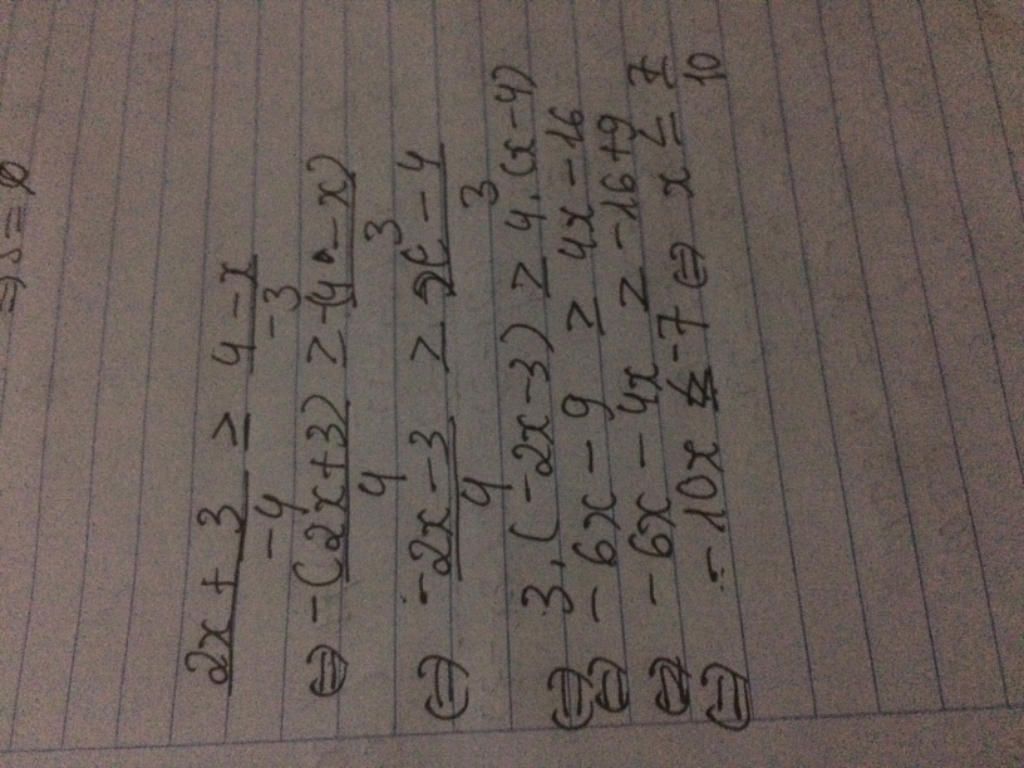 ⇒ S = ∅
2x + 3 / -4 ≥ 4 - x / -3
⇔ -(2x+3) / 4 ≥ -(4 - x) / 3
⇔ -2x - 3 / 4 ≥ x - 4 / 3
⇔ 3.(-2x-3) ≥ 4.(x-4)
⇔ -6x - 9 ≥ 4x - 16
⇔ -6x - 4x ≥ -16+9
⇔ -10x ≥ -7 ⇔ x ≤ 7/10